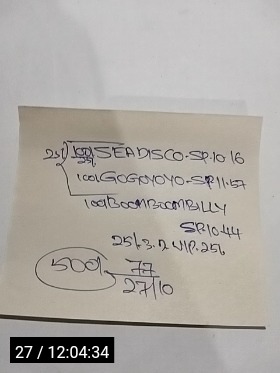 25/ 100/ SEADISCO-SP.10.16
25/
100/GOGOYOYO-SP.11.57
100/BOOMBOOMBILLY
SP.10.44
25/.3.2.V/P.25/
500/ 77
27/10
27 / 12:04:34